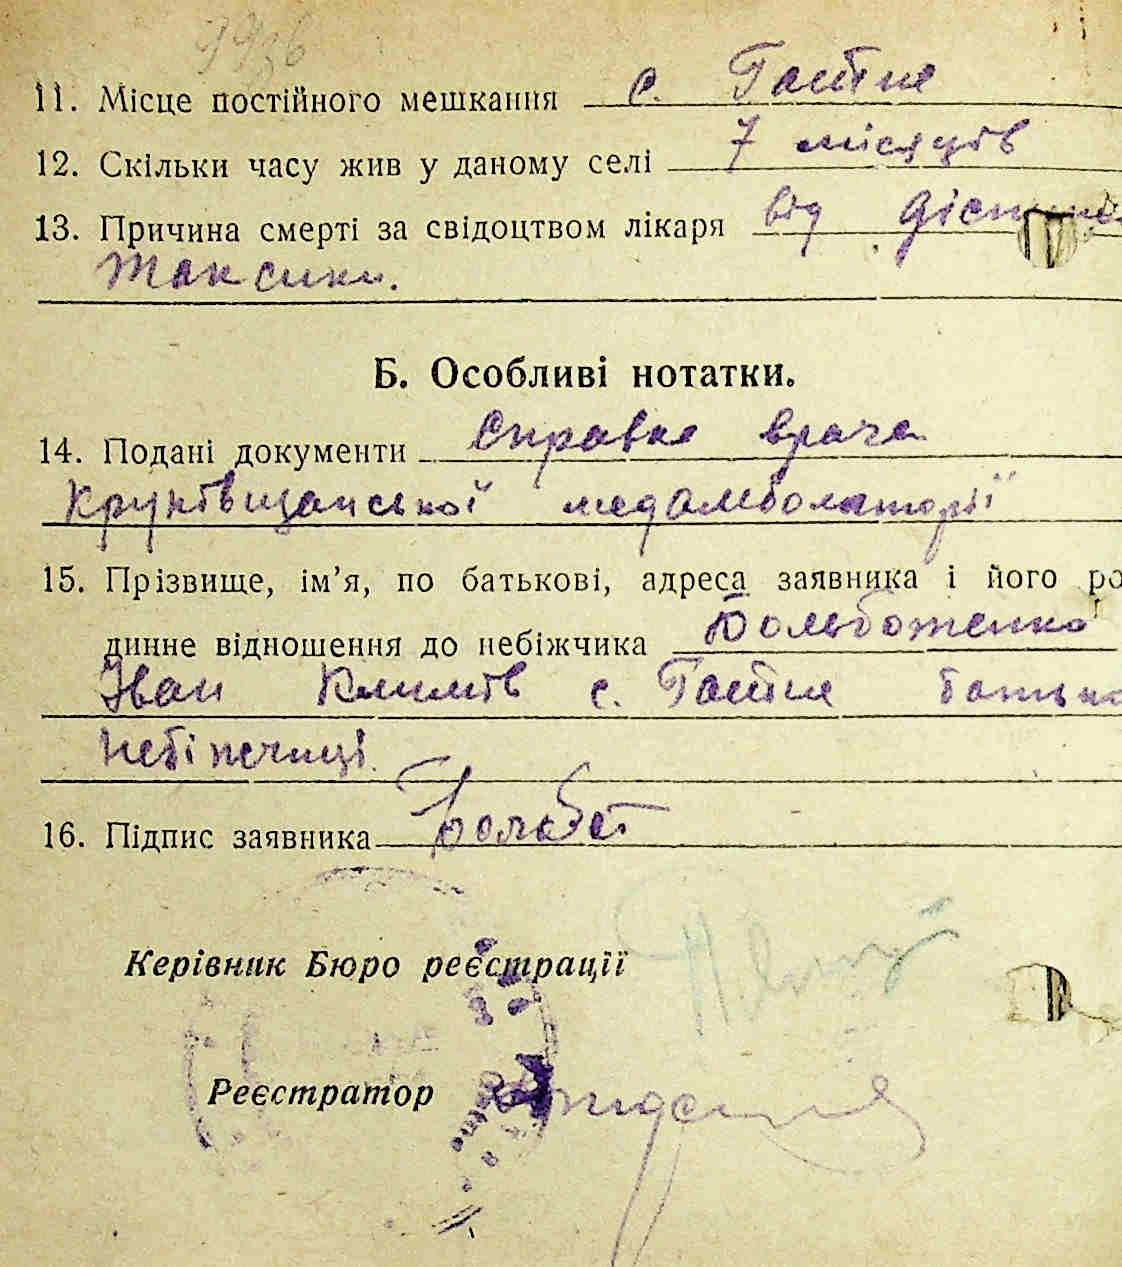 11. Місце постійного мешкання с. Гостре
12. Скільки часу жив у даному селі 7 місяців
13. Причина смерті за свідоцтвом лікаря від
токсики.
Б. Особливі нотатки.
14. Подані документи Справка врача
медамболаторії
15. Прізвище, ім’я, по батькові, адреса заявника і його ро
динне відношення до небіжчика
Іван Климів с. батько
небіжчиці
16. Підпис заявника
Керівник Бюро реєстрації
Реєстратор